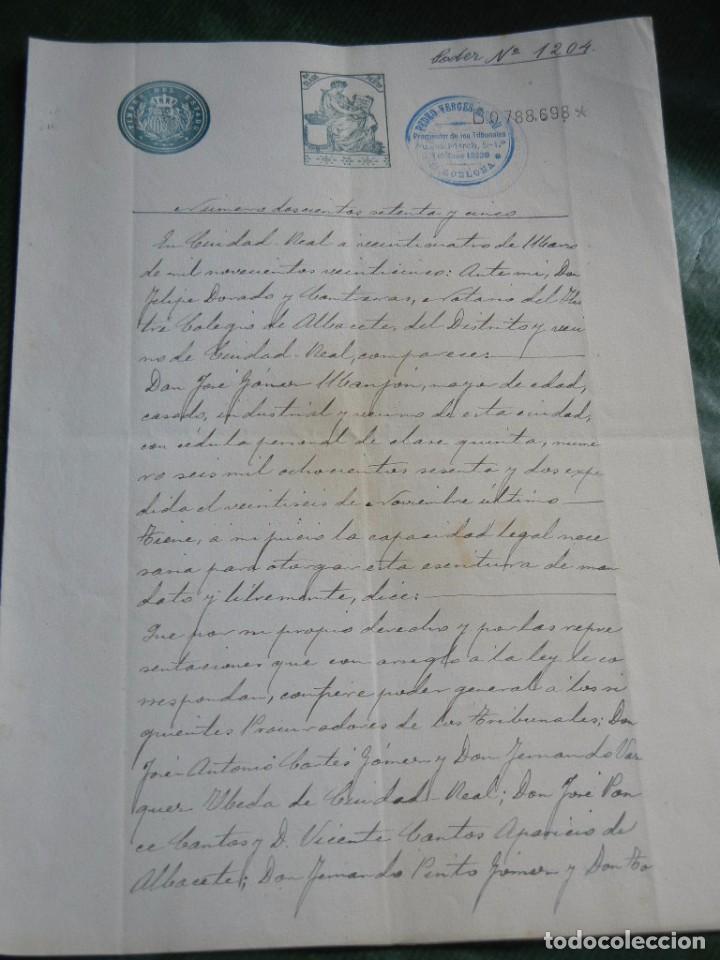 Poder Nº 1204.
TIMBRE DEL ESTADO
B0.788.698*
PEDRO VERGES
Procurador de los Tribunales
BARCELONA
Número doscientos setenta y cinco
En Ciudad-Real a veinticuatro de Marzo
de mil novecientos veinticinco: Ante mi, Don
Felipe Dorado y Contreras, Notario del Ilus
tre Colegio de Albacete, del Distrito y veci
no de Ciudad-Real, comparece:
Don José Gómez Manjón, mayor de edad,
casado, industrial y vecino de esta ciudad,
con cédula personal de clase quinta, núme
ro seis mil ochocientos sesenta y dos expe
dida el veintiseis de Noviembre último
Tiene, a mi juicio la capacidad legal nece
saria para otorgar esta escritura de man
dato y libremente, dice:
Que por su propio derecho y por las repre
sentaciones que con arreglo a la ley le co
rrespondan, confiere poder general a los si
guientes Procuradores de los Tribunales; Don
José Antonio Cortés Gómez y Don Fernando Váz
quez Ubeda de Ciudad-Real; Don José Pon
ce Cantos y D. Vicente Cantos Aparicio de
Albacete; Don Fernando Pinto Gómez y Don
todocoleccion